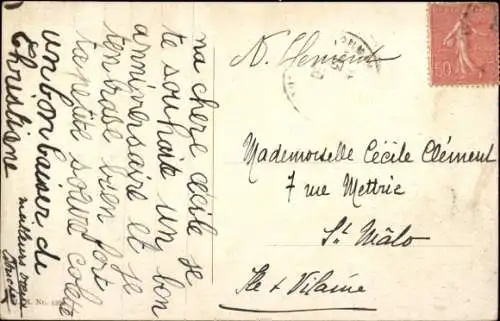 na chere cecile je
te souhaite un bon
anniversaire et je
tembrase bien fort
ta petite soeur colete
un bon baiser de
Christiane
meilleurs voeux
N. Clément
50
Mademoiselle Cécile Clément
7 rue Mettrie
St Malo
Ile & Vilaine